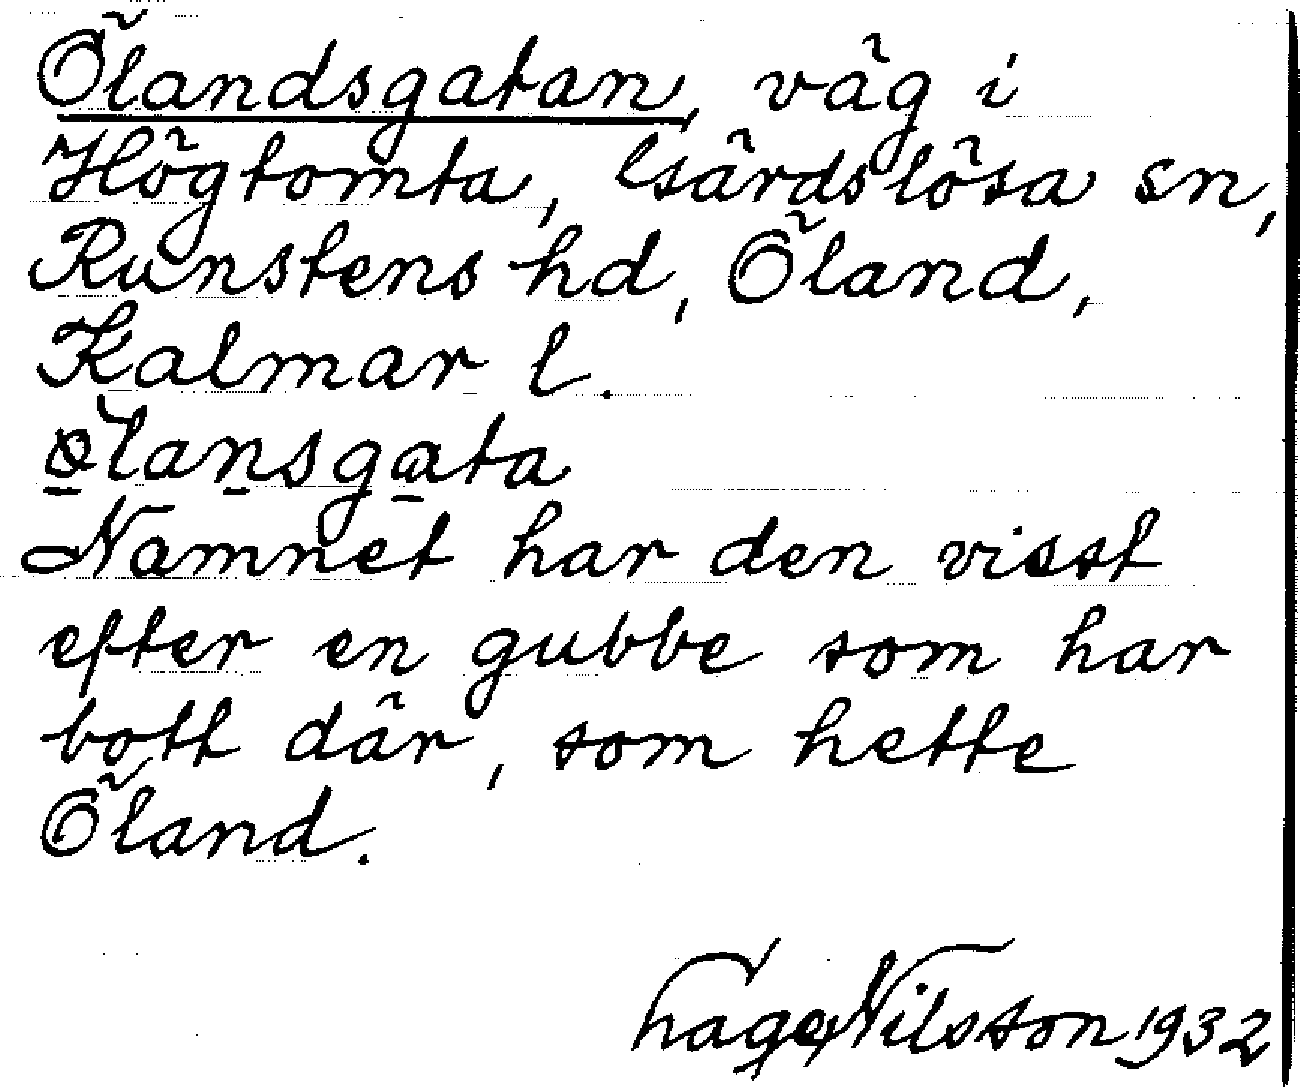 Ölandsgatan, väg i
Högtomta, Gärdslösa sn,
Runstens hd, Öland,
Kalmar l.
ò̱lanṣga̱ta
Namnet har den visst
efter en gubbe som har
bott där, som hette
Öland.
Hage Nilsson 1932